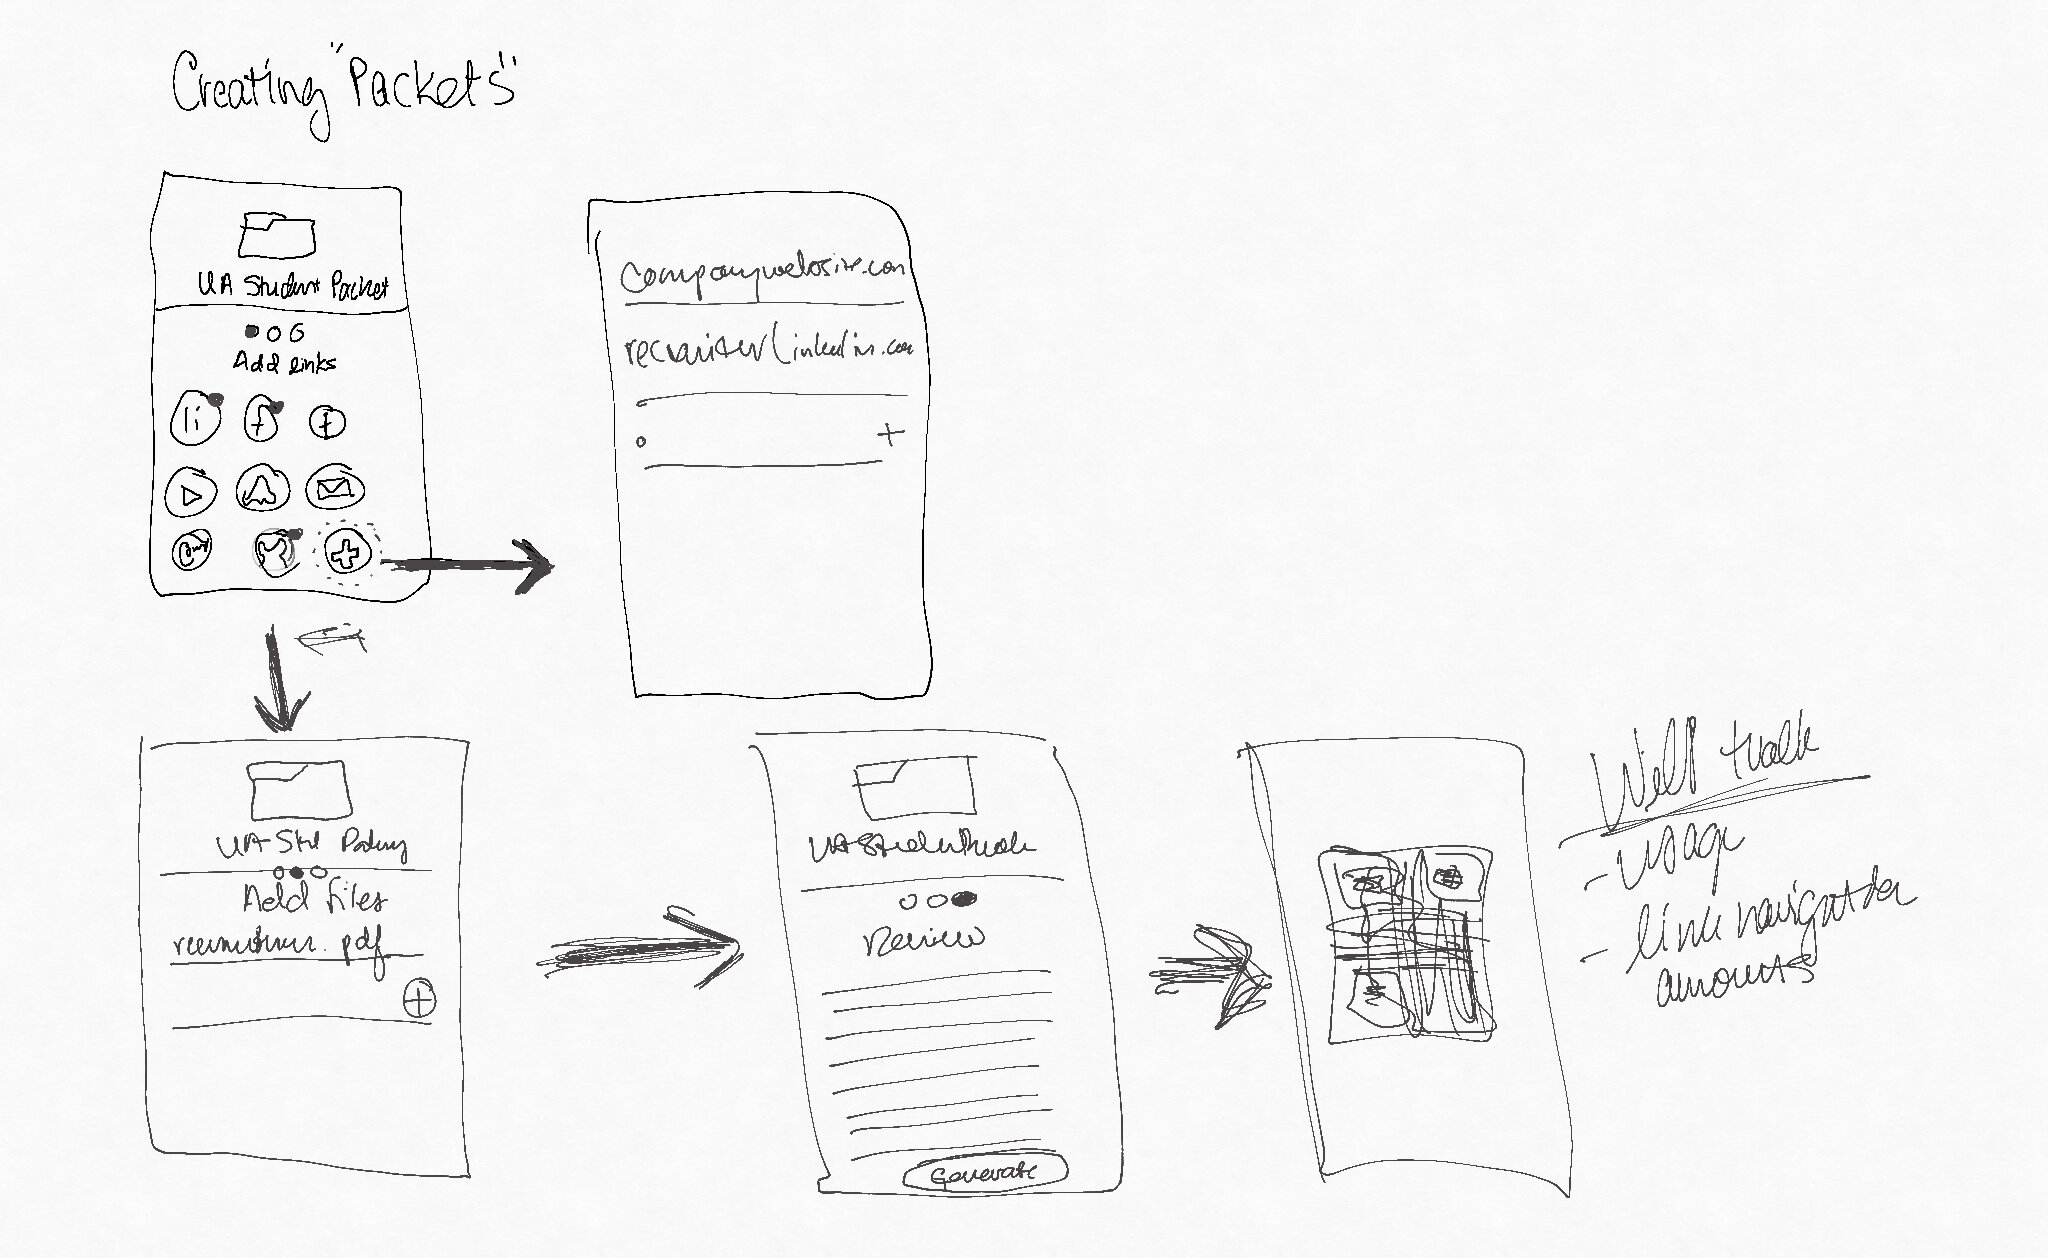 Creating "Packets"
UA Student Packet
Add links
li f t
companywebsite.com
recruiterlinkedin.com
UA Std
Add files
.pdf
UA Student
Review
Generate
Will track
- usage
- link navigation
amounts